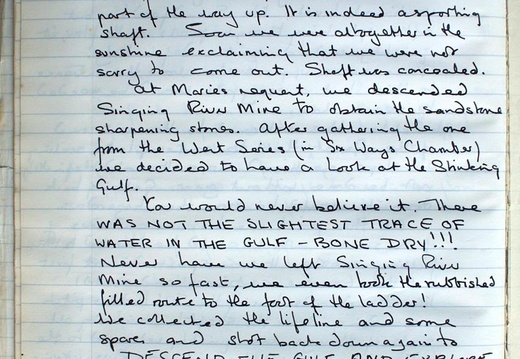 part of the way up. It is indeed a sporting
shaft. Soon we were altogether in the
sunshine exclaiming that we were not
sorry to come out. Shaft was concealed.
At Maries request, we descended
Singing River Mine to obtain the sandstone
sharpening stones. After gathering the one
from the West Series (in Six Ways Chamber)
we decided to have a look at the Stinking
Gulf.
You would never believe it. There
WAS NOT THE SLIGHTEST TRACE OF
WATER IN THE GULF - BONE DRY!!!
Never have we left Singing River
Mine so fast, we even took the rubbished
filled route to the foot of the ladder!
We collected the lifeline and some
spares and shot back down again to
DESCEND THE GULF AND EXPLORE